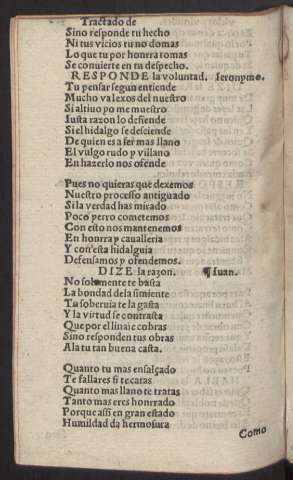 Tractado de
Sino responde tu hecho
Ni tus vicios tu no domas
Lo que tu por honrra tomas
Se conuierte en tu despecho.
RESPONDE la voluntad. Ieronymo.
Tu pensar segun entiende
Mucho va lexos del nuestro
Si altiuo po me muestro
Iusta razon lo defiende
Si el hidalgo se desciende
De quien es a ser mas llano
El vulgo rudo y villano
En hazerlo nos ofende
Pues no quieras que dexemos
Nuestro processo antiguado
Si la verdad has mirado
Poco yerro cometemos
Con esto nos mantenemos
En honrra y caualleria
Y con esta hidalguia
Defensamos y ofendemos.
DIZE la razon. ¶ Iuan.
No solamente te basta
La bondad de la simiente
Tu soberuia te la gasta
Y la virtud se contrasta
Que por el linaje cobras
Sino responden tus obras
A la tu tan buena casta.
Quanto tu mas ensalçado
Te fallares si te catas
Quanto mas llano te tratas
Tanto mas eres honrrado
Porque assi en gran estado
Humildad da hermosura
Como